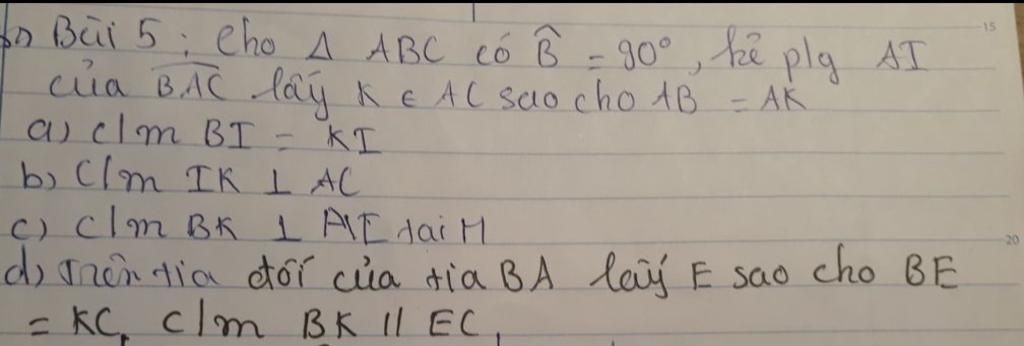 Bài 5 : Cho Δ ABC có B̂ = 90°, kẻ plg AI
của BAC lấy K ∈ AC sao cho AB = AK
a) C/m BI = KI
b) C/m IK ⊥ AC
c) C/m BK ⊥ AI tại H
d) Trên tia đối của tia BA lấy E sao cho BE
= KC, C/m BK // EC,
15
20